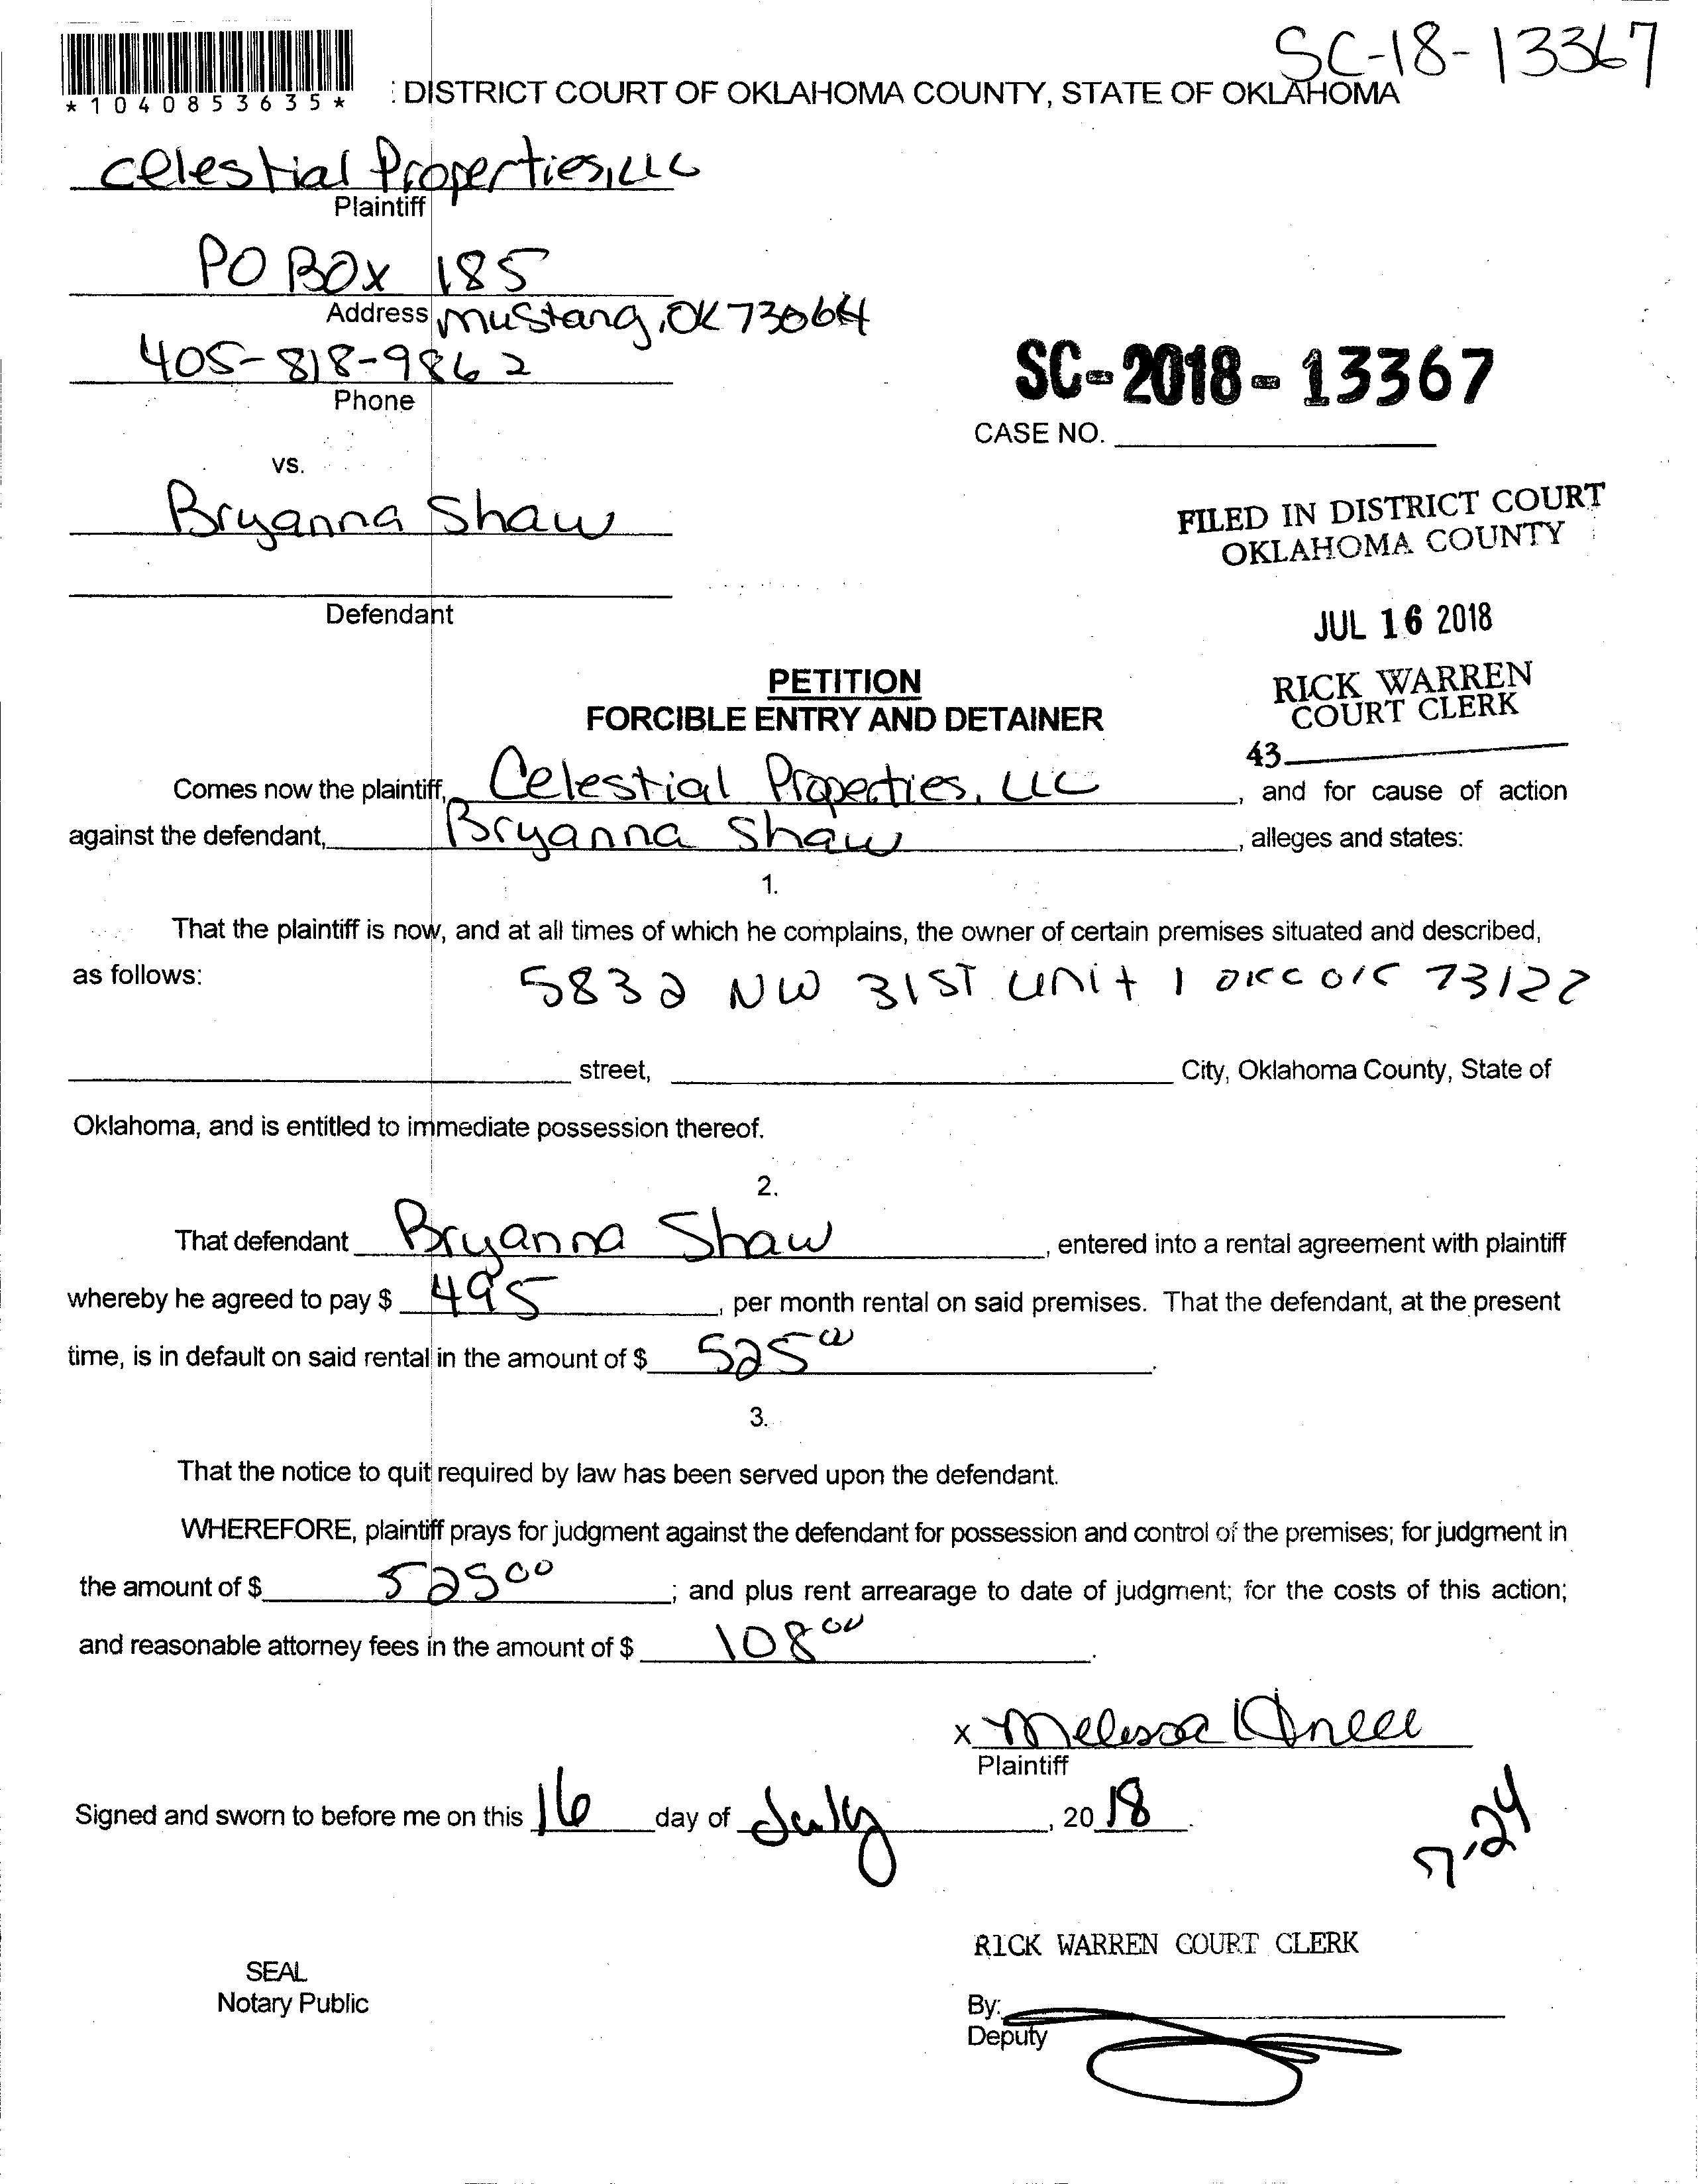 SC-18-13367
*1040853635*
: DISTRICT COURT OF OKLAHOMA COUNTY, STATE OF OKLAHOMA
Celestial Properties, LLC
Plaintiff
PO BOX 185
Address Mustang, OK 73064
405-818-9862
Phone
SC-2018-13367
CASE NO.
vs.
Bryanna Shaw
Defendant
FILED IN DISTRICT COURT
OKLAHOMA COUNTY
JUL 16 2018
RICK WARREN
COURT CLERK
43
PETITION
FORCIBLE ENTRY AND DETAINER
Comes now the plaintiff, Celestial Properties, LLC, and for cause of action
against the defendant, Bryanna Shaw, alleges and states:
1.
That the plaintiff is now, and at all times of which he complains, the owner of certain premises situated and described,
as follows: 5832 NW 31ST Unit 1 OKC OK 73122
street, City, Oklahoma County, State of
Oklahoma, and is entitled to immediate possession thereof.
2.
That defendant Bryanna Shaw, entered into a rental agreement with plaintiff
whereby he agreed to pay $ 495, per month rental on said premises. That the defendant, at the present
time, is in default on said rental in the amount of $ 525 00.
3.
That the notice to quit required by law has been served upon the defendant.
WHEREFORE, plaintiff prays for judgment against the defendant for possession and control of the premises; for judgment in
the amount of $ 525 00; and plus rent arrearage to date of judgment; for the costs of this action;
and reasonable attorney fees in the amount of $ 108 00.
x Melissa
Plaintiff
Signed and sworn to before me on this 16 day of July, 20 18.
7-24
RICK WARREN COURT CLERK
SEAL
Notary Public
By:
Deputy